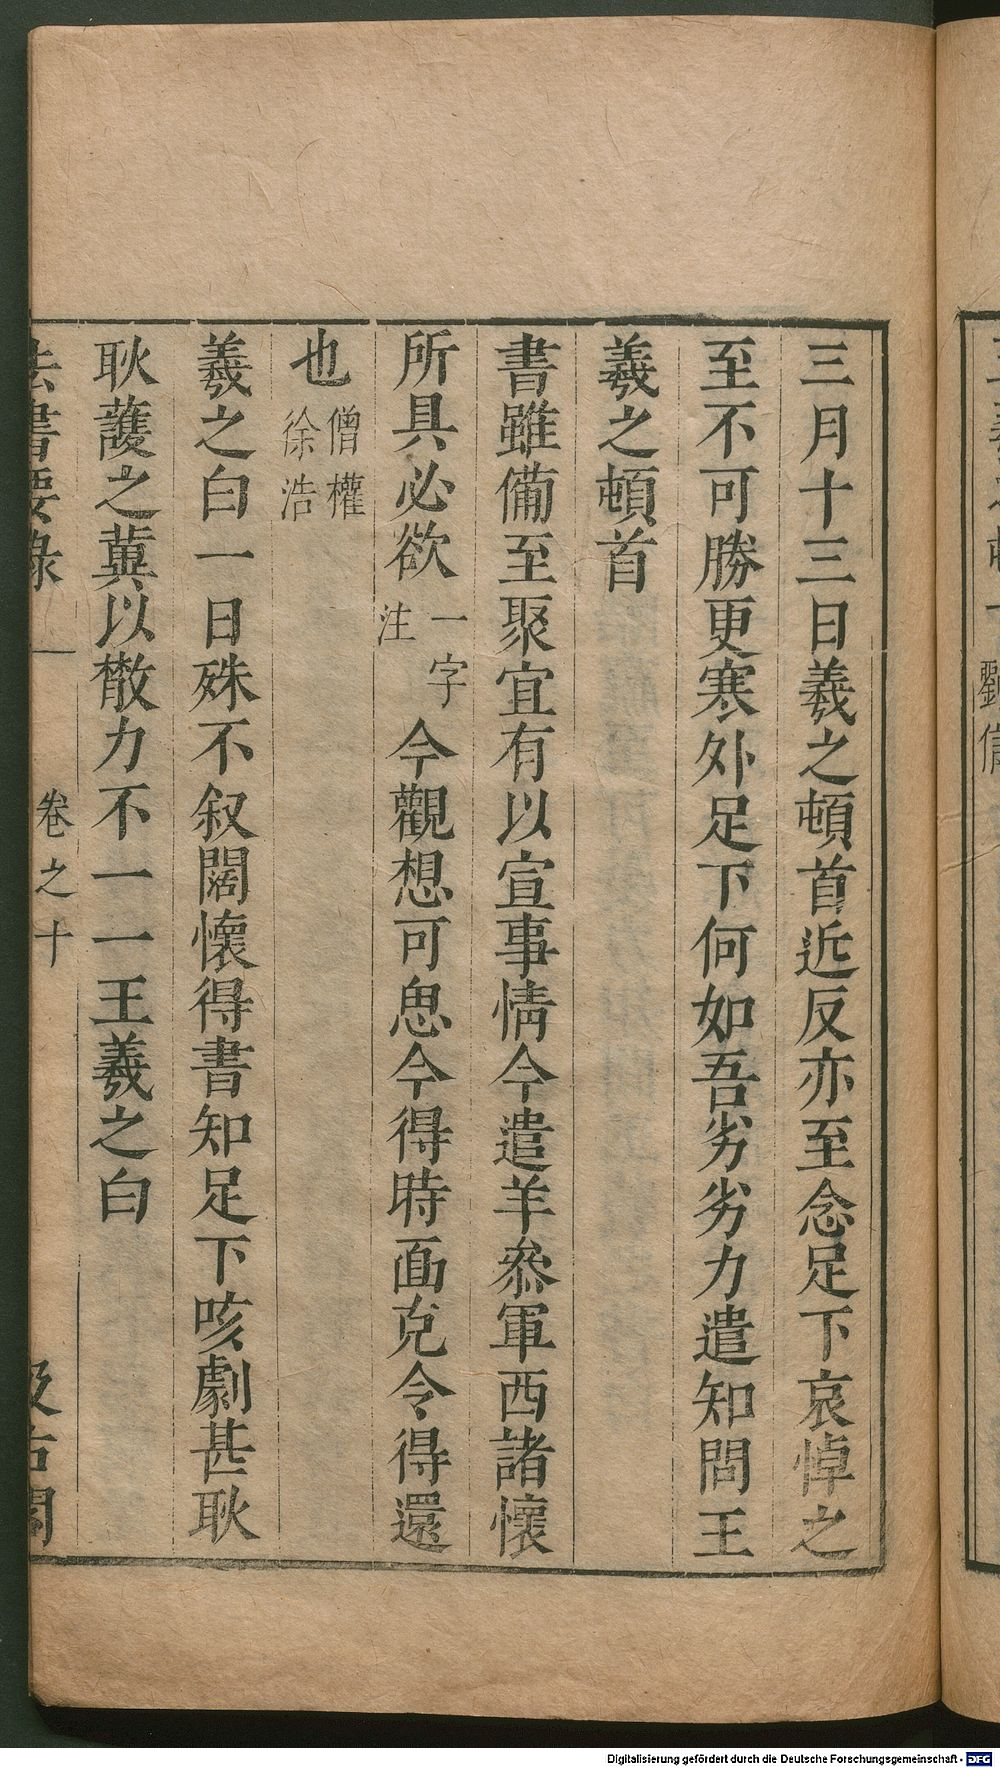 三月十三日羲之頓首近反亦至念足下哀悼之
至不可勝更寒外足下何如吾劣劣力遣知問王
羲之頓首
書雖備至聚宜有以宣事情今遣羊叅軍西諸懷
所具必欲一字注今觀想可思今得時面克令得還
也僧權徐浩
羲之白一日殊不叙闊懷得書知足下咳劇甚耿
耿護之冀以散力不一一王羲之白
法書要錄 卷之十 汲古閣
劉
Digitalisierung gefördert durch die Deutsche Forschungsgemeinschaft - DFG